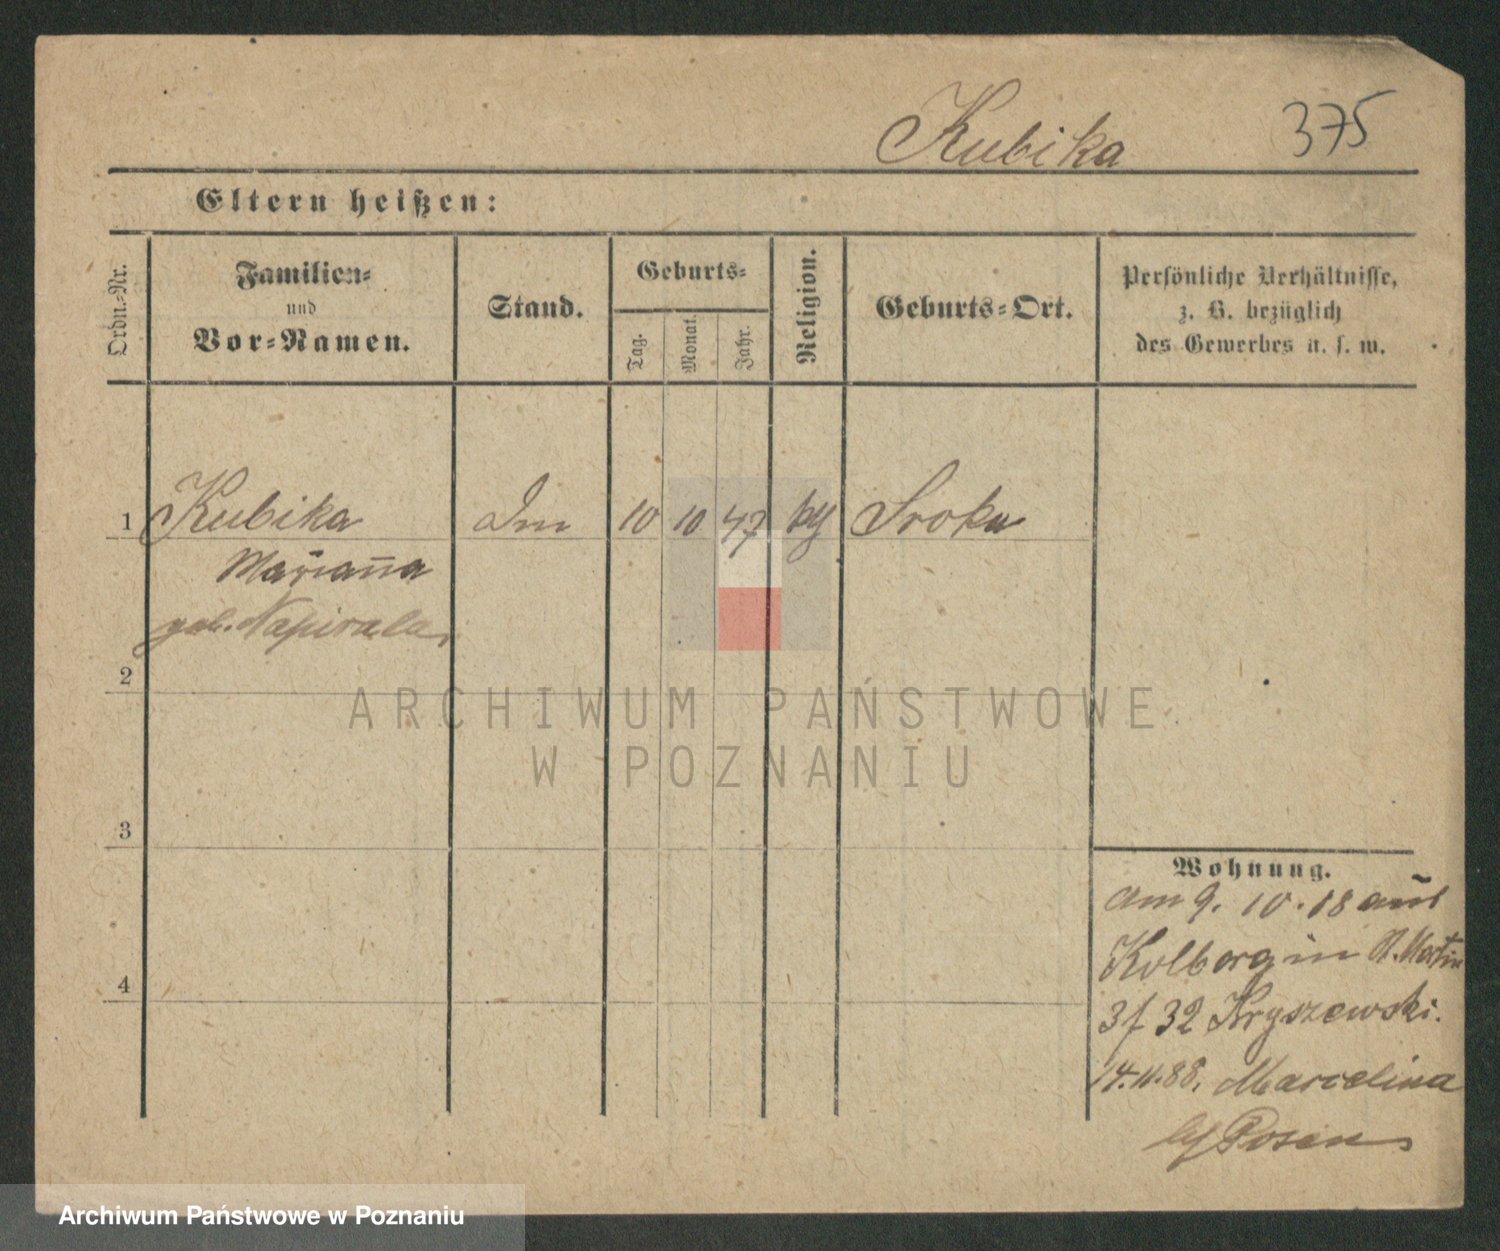 Kubika 375
Eltern heißen:
Ordn.-Nr.
Familien-
und
Vor-Namen.
Stand.
Geburts-
Tag.
Monat.
Jahr.
Religion.
Geburts-Ort.
Persönliche Verhältnisse,
z. B. bezüglich
des Gewerbes u. s. w.
1 Kubika 10 10 47 Sroka
Marianna
geb. Napirala
2
3
4
Wohnung.
am 9. 10. 18 aus
Kolberg in St. Martin
32 Kryszewski.
14.11.88. Marcelina
Posen
ARCHIWUM PAŃSTWOWE
W POZNANIU
Archiwum Państwowe w Poznaniu